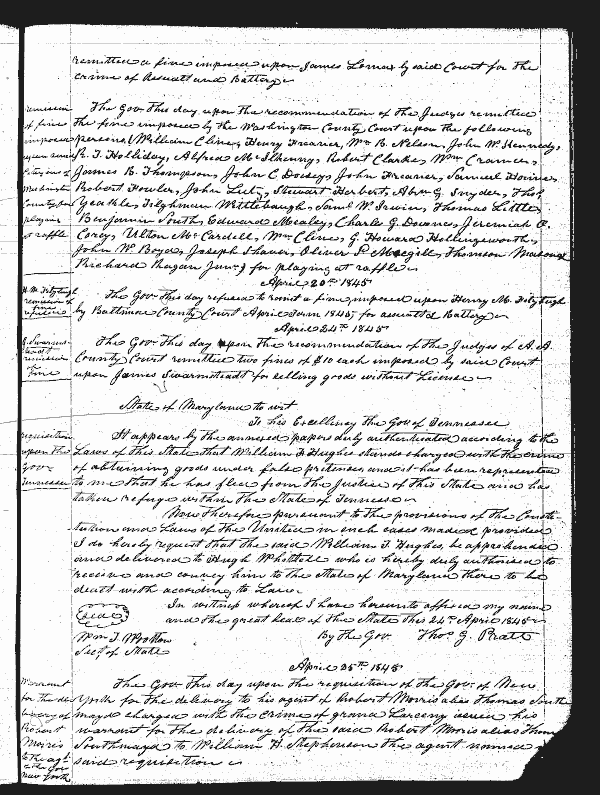 remitted a fine imposed upon James Lomax by said Court for the
crime of Assault and Battery
remission
of fine
imposed
upon
Washington
County
playing
at raffle
The Gov. this day upon the recommendation of the Judges remitted
the fine imposed by the Washington County Court upon the following
persons, William Cline, Henry Freaner, Wm B. Nelson, John W. Kennedy,
R. T. Holliday, Alfred McIlhenny, Robert Clarke, Wm Cramer,
James B. Thompson, John C. Dorsey, John Freaner, Samuel Haines,
Robert Fowler, John Lutz, Stewart Herbert, Abm G. Snyder, Thos
Yeakle, Tilghman Wittlebaugh, Saml W. Irwin, Thomas Little,
Benjamin South, Edward Mealey, Charles G. Downes, Jeremiah O.
Corey, Ulton McCardell, Wm Cline, G. Howard Hollingsworth,
John W. Boyd, Joseph Shaver, Oliver P. Magill, Thomson
Richard Ragan Junr for playing at raffle
April 20th 1845
H. M. Fitzhugh
remission of
The Gov. this day refused to remit a fine imposed upon Henry M. Fitzhugh
by Baltimore County Court April Term 1845 for assault & Battery
April 24th 1845
remission
Fine
The Gov. this day upon the recommendation of the Judges of A. A.
County Court remitted two fines of $10 each imposed by said Court
upon James Swarmstead for selling goods without License
State of Maryland to wit
To his Excellency the Gov. of Tennessee
requisition
upon the
Gov.
Tennessee
It appears by the annexed papers duly authenticated according to the
Laws of this State that William T. Hughes stands charged with the crime
of obtaining goods under false pretenses and it has been represented
to me that he has fled from the Justice of this State and has
taken refuge within the State of Tennessee
Now Therefore pursuant to the provisions of the Consti-
tution and Laws of the United in such cases made & provided
I do hereby request that the said William T. Hughes, be apprehended
and delivered to Hugh who is hereby duly authorised to
receive and convey him to the State of Maryland there to be
dealt with according to Law.
In witness whereof I have hereunto affixed my name
Seal
and the great Seal of the State this 24th April 1845
Wm T. Wootton
By the Gov. Thos G. Pratt
Secy of State
April 25th 1845
Warrant
for the de-
livery of
Robert
Morris
to the agt
of the Gov
New York
The Gov. this day upon the requisition of the Gov. of New
York for the delivery to his agent of Robert Morris alias Thomas South
mayd charged with the crime of grand Larceny issued his
warrant for the delivery of the said Robert Morris alias Thom
Southmayd to William H. Stephenson the agent named
said requisition